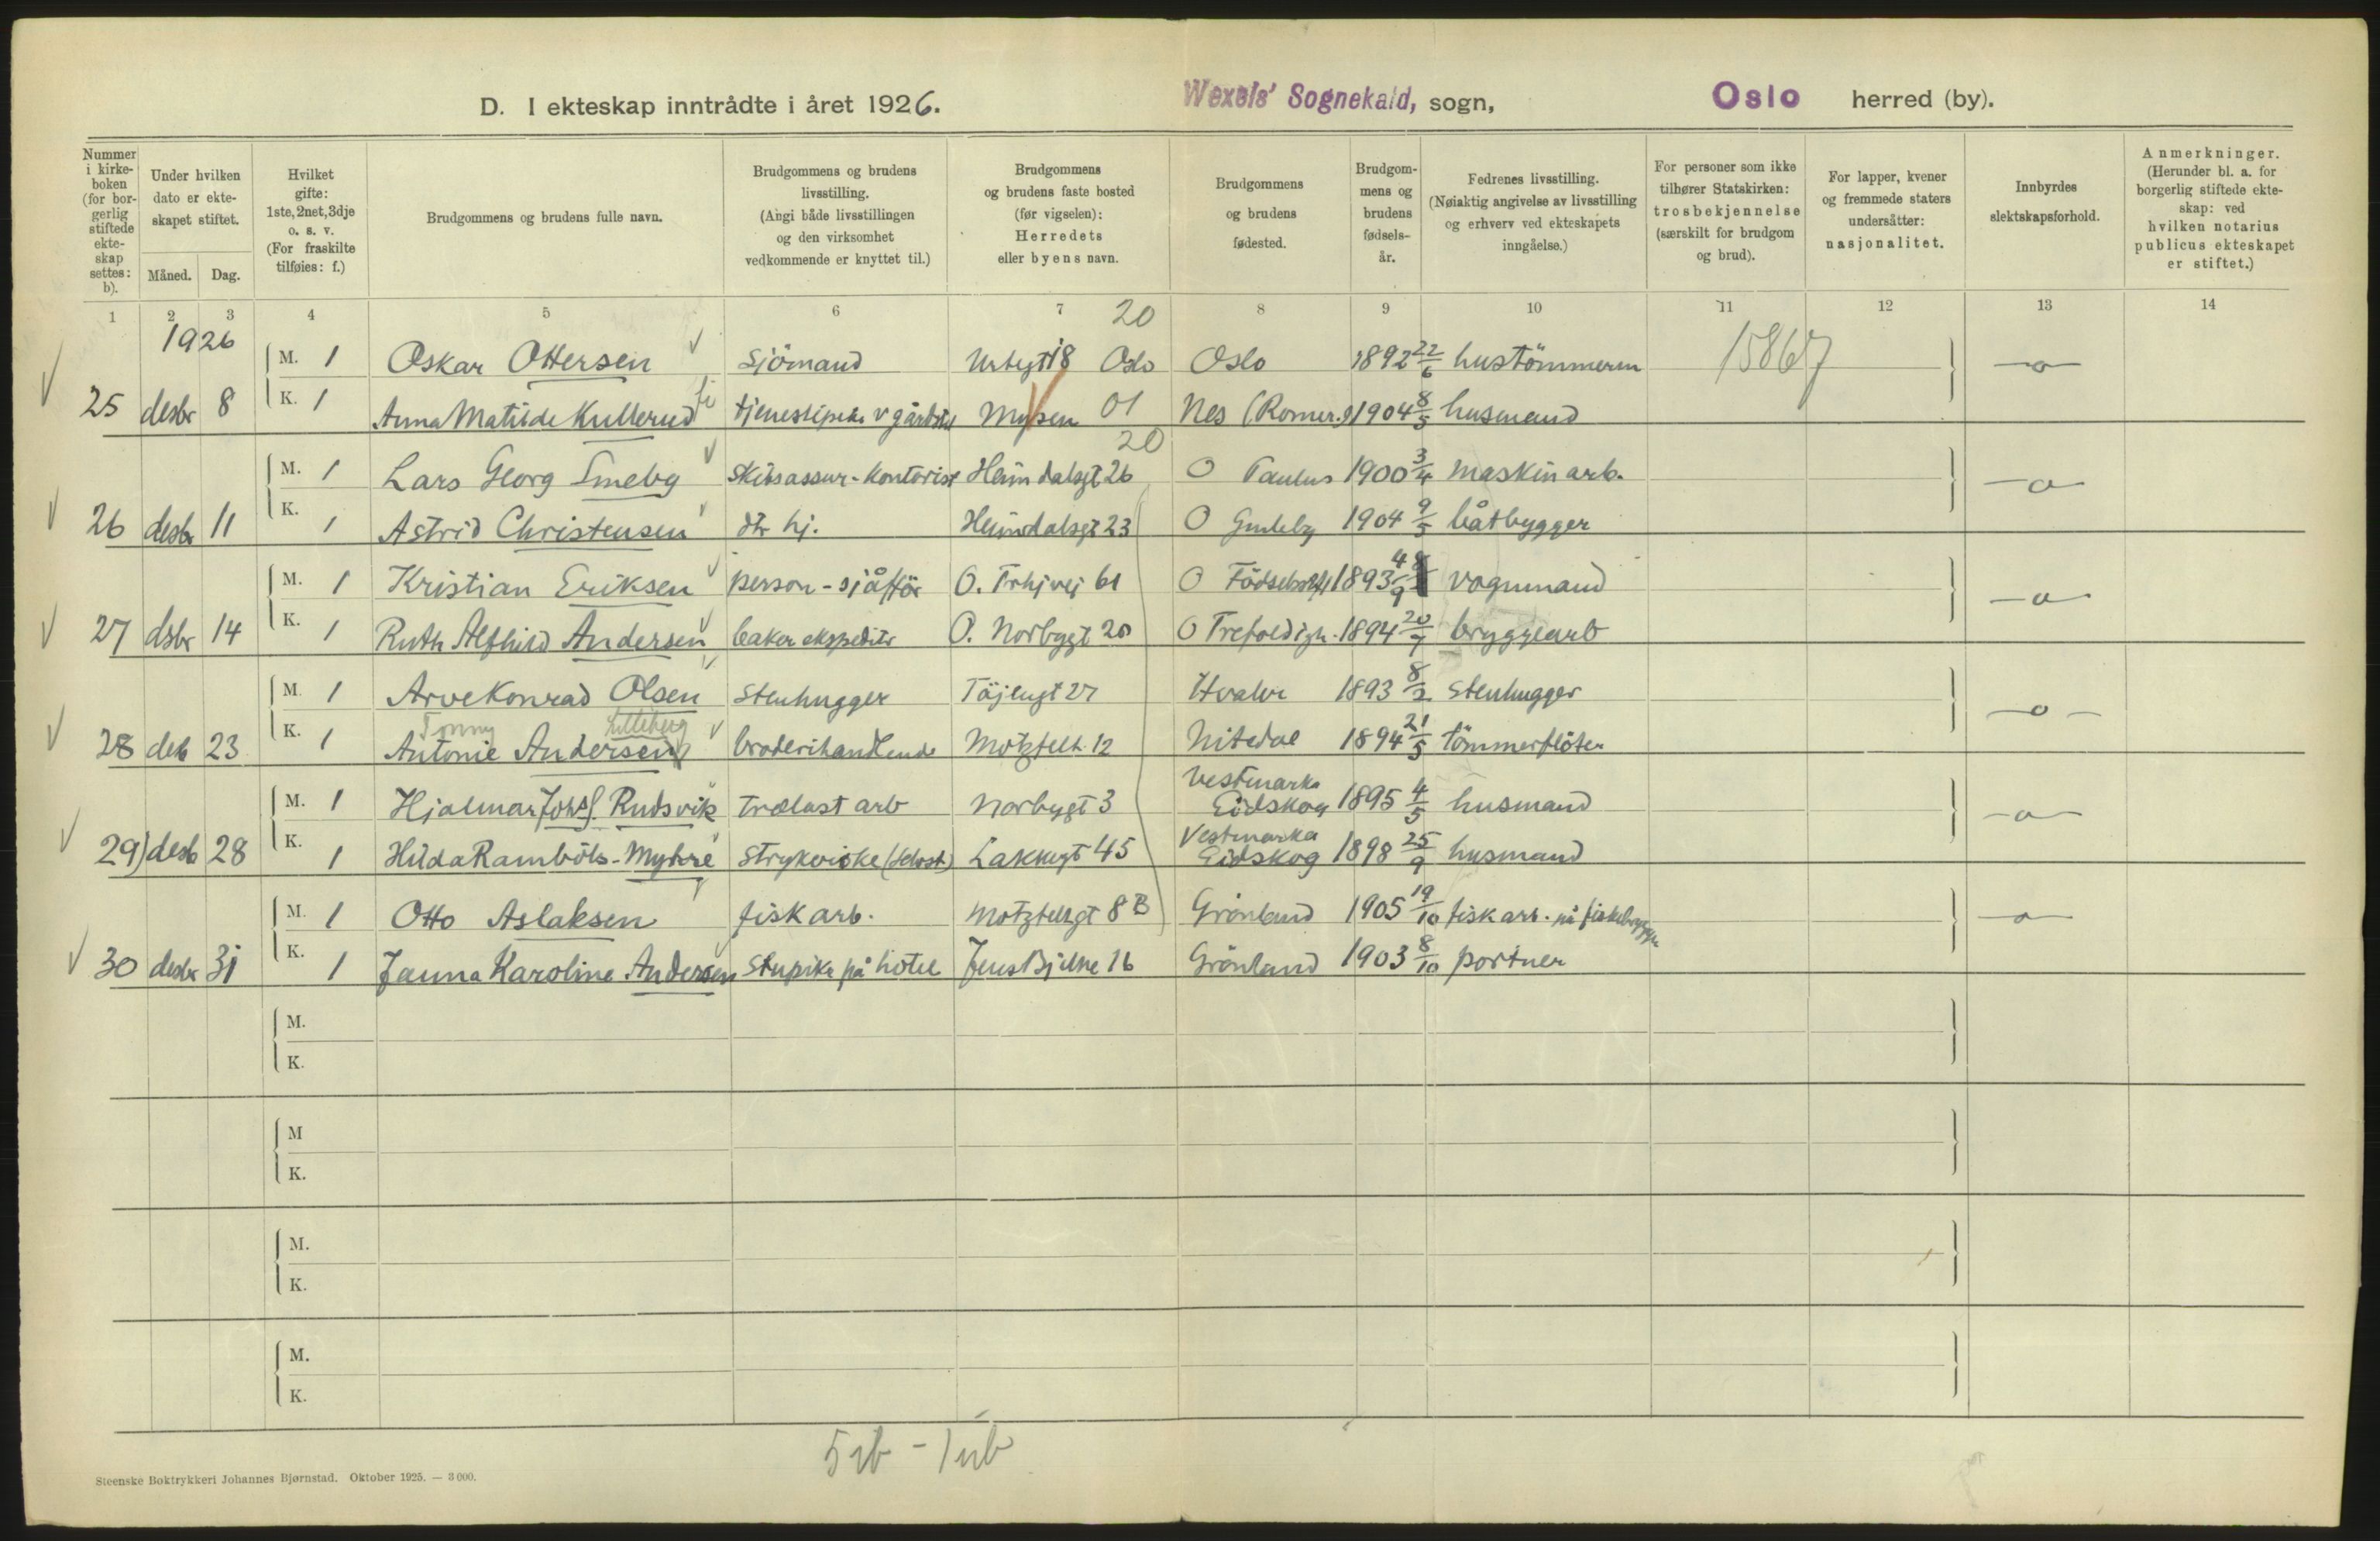 D. I ekteskap inntrådte i året 1926. Wexels' Sognekald, sogn, Oslo herred (by).
Nummer i kirke-boken (for bor-gerlig stiftede ekte-skap settes: b).
Under hvilken dato er ekte-skapet stiftet.
Måned. Dag.
Hvilket gifte: 1ste, 2net, 3dje o. s. v. (For fraskilte tilføies: f.)
Brudgommens og brudens fulle navn.
Brudgommens og brudens livsstilling. (Angi både livsstillingen og den virksomhet vedkommende er knyttet til.)
Brudgommens og brudens faste bosted (før vigselen): Herredets eller byens navn.
Brudgommens og brudens fødested.
Brudgom-mens og brudens fødsels-år.
Fedrenes livsstilling. (Nøiaktig angivelse av livsstilling og erhverv ved ekteskapets inngåelse.)
For personer som ikke tilhører Statskirken: trosbekjennelse (særskilt for brudgom og brud).
For lapper, kvener og fremmede staters undersåtter: nasjonalitet.
Innbyrdes slektskapsforhold.
Anmerkninger. (Herunder bl. a. for borgerlig stiftede ekte-skap: ved hvilken notarius publicus ekteskapet er stiftet.)
1 2 3 4 5 6 7 8 9 10 11 12 13 14
1926 20
M. 1 Oskar Ottersen sjömand Urtegt 18 Oslo Oslo 1892 22/6 hustömmerm 15867 -o-
25 desbr 8 K. 1 Anna Matilde Kullerud tjenestepike v gårdst Mysen 01 Nes (Romer.) 1904 8/5 husmand
20
M. 1 Lars Georg Smeby skibsassur-kontorist Heimdalsgt 26 O Paulus 1900 3/4 maskinarb. -o-
26 desbr 11 K. 1 Astrid Christensen dtr hj. Heimdalsgt 23 O Gmleby 1904 9/5 båtbygger
M. 1 Kristian Eriksen person-sjåfför O. Trhjvej 61 O 1893 4/9 vognmand -o-
27 dsbr 14 K. 1 Ruth Alfhild Andersen baker ekspeditr O. Norbygt 20 O Trefoldigh. 1894 20/7 bryggearb
M. 1 Arve Konrad Olsen Stenhugger Töjengt 27 Hvaler 1893 8/2 Stenhugger -o-
Tonny Lilleberg
28 deb 23 K. 1 Antonie Andersen broderihandlende Motzfelt. 12 Nitedal 1894 21/5 tömmerflöter
Vestmarka
M. 1 Hjalmar Johs. Rudsvik trælast arb Norbygt 3 Eidskog 1895 4/5 husmand -o-
Vestmarka
29) desb 28 K. 1 Hilda Ramböls-Myhre strykerske (selvst.) Lakkegt 45 Eidskog 1898 25/9 husmand
M. 1 Otto Aslaksen fiskarb. Motzfeldtgt 8 B Grönland 1905 19/10 fiskarb. på fiskebryggen -o-
30 desbr 31 K. 1 Janna Karoline Andersen stupike på hotel Jens Bjelke 16 Grönland 1903 8/10 portner
M.
K.
M
K.
M.
K.
M.
K.
Steenske Boktrykkeri Johannes Bjørnstad. Oktober 1925. — 3 000.